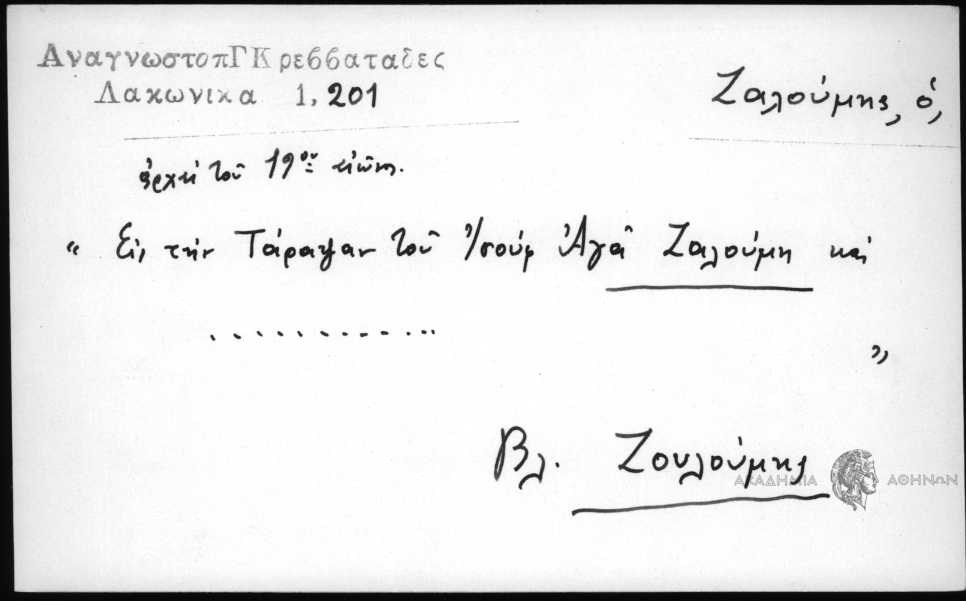 ΑναγνωστοπΓΚρεββαταδες
Λακωνικα 1, 201
Ζαλούμης, ὁ,
ἀρχὲς τοῦ 19ου αἰῶνος.
" Εἰς τὴν Τάραψαν τοῦ Ἀγᾶ Ζαλούμη καὶ
. . . . . . . . . . . . .
"
Βλ. Ζουλούμης
ΑΚΑΔΗΜΙΑ ΑΘΗΝΩΝ